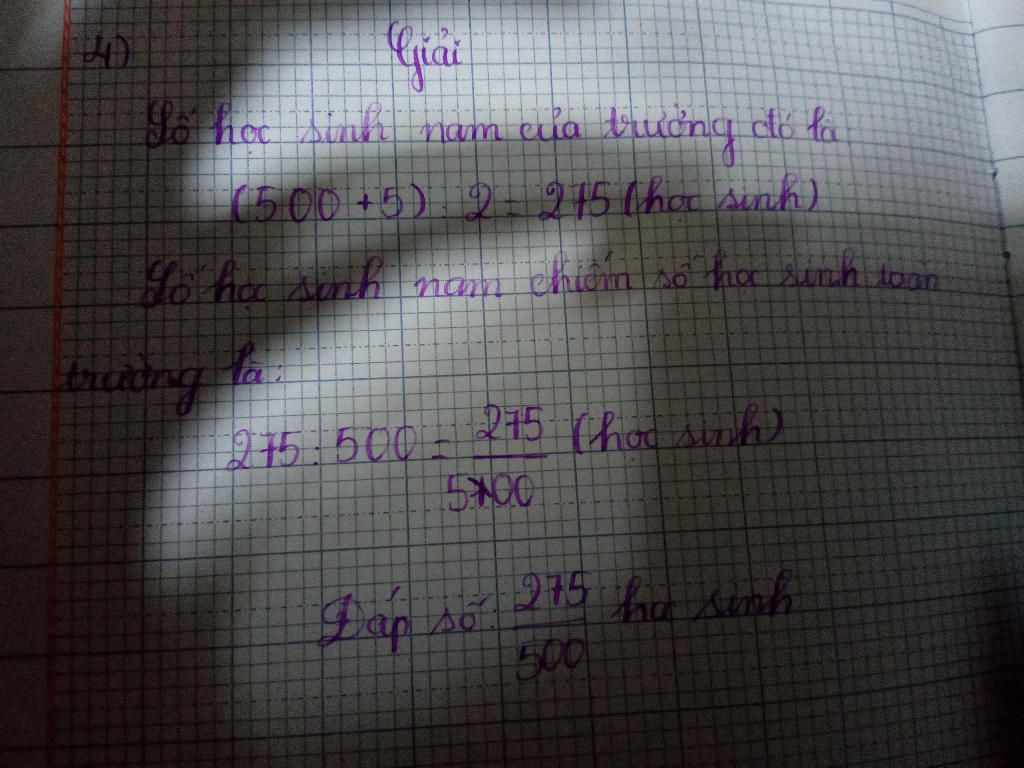 4) Giải
Số học sinh nam của trường đó là
(500 + 5) : 2 = 275 (học sinh)
Số học sinh nam chiếm số học sinh toàn
trường là:
275 : 500 = 275/500 (học sinh)
Đáp số: 275/500 học sinh